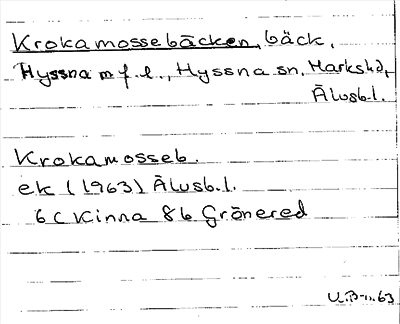 Krokamossebäcken, bäck,
Hyssna m f l., Hyssna sn, Markshd,
Älvsb.l.
Krokamosseb.
ek (1963) Älvsb.l.
6 C Kinna 8 b Grönered